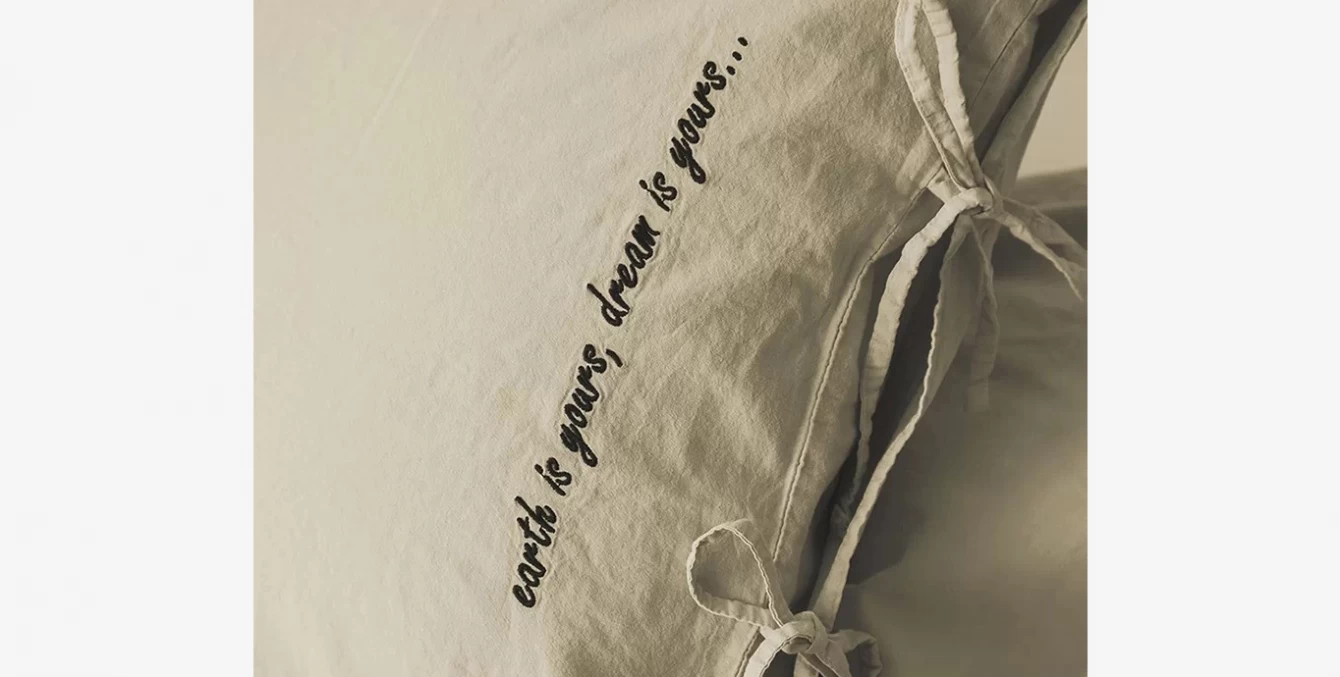 earth is yours, dream is yours...